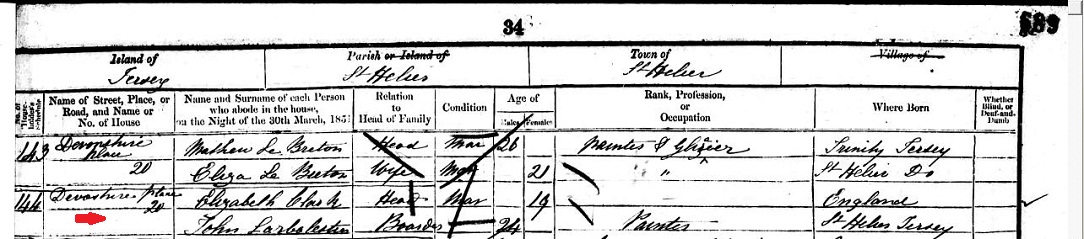 34
589
Island of
Jersey
Parish or Island of
St Helier
Town of
St Helier
Village of
No. of House-holder's Schedule
Name of Street, Place, or Road, and Name or No. of House
Name and Surname of each Person who abode in the house, on the Night of the 30th March, 1851
Relation to Head of Family
Condition
Age of
Males Females
Rank, Profession, or Occupation
Where Born
Whether Blind, or Deaf-and-Dumb
143 Devonshire place Mathew Le Breton Head Mar 26 Painter & Glazier Trinity Jersey
20 Eliza Le Breton Wife 21 " St Helier Do
144 Devonshire place 20 Elizabeth Clark Head Mar 19 England
John Larbalestier Boarder 24 Painter St Helier Jersey